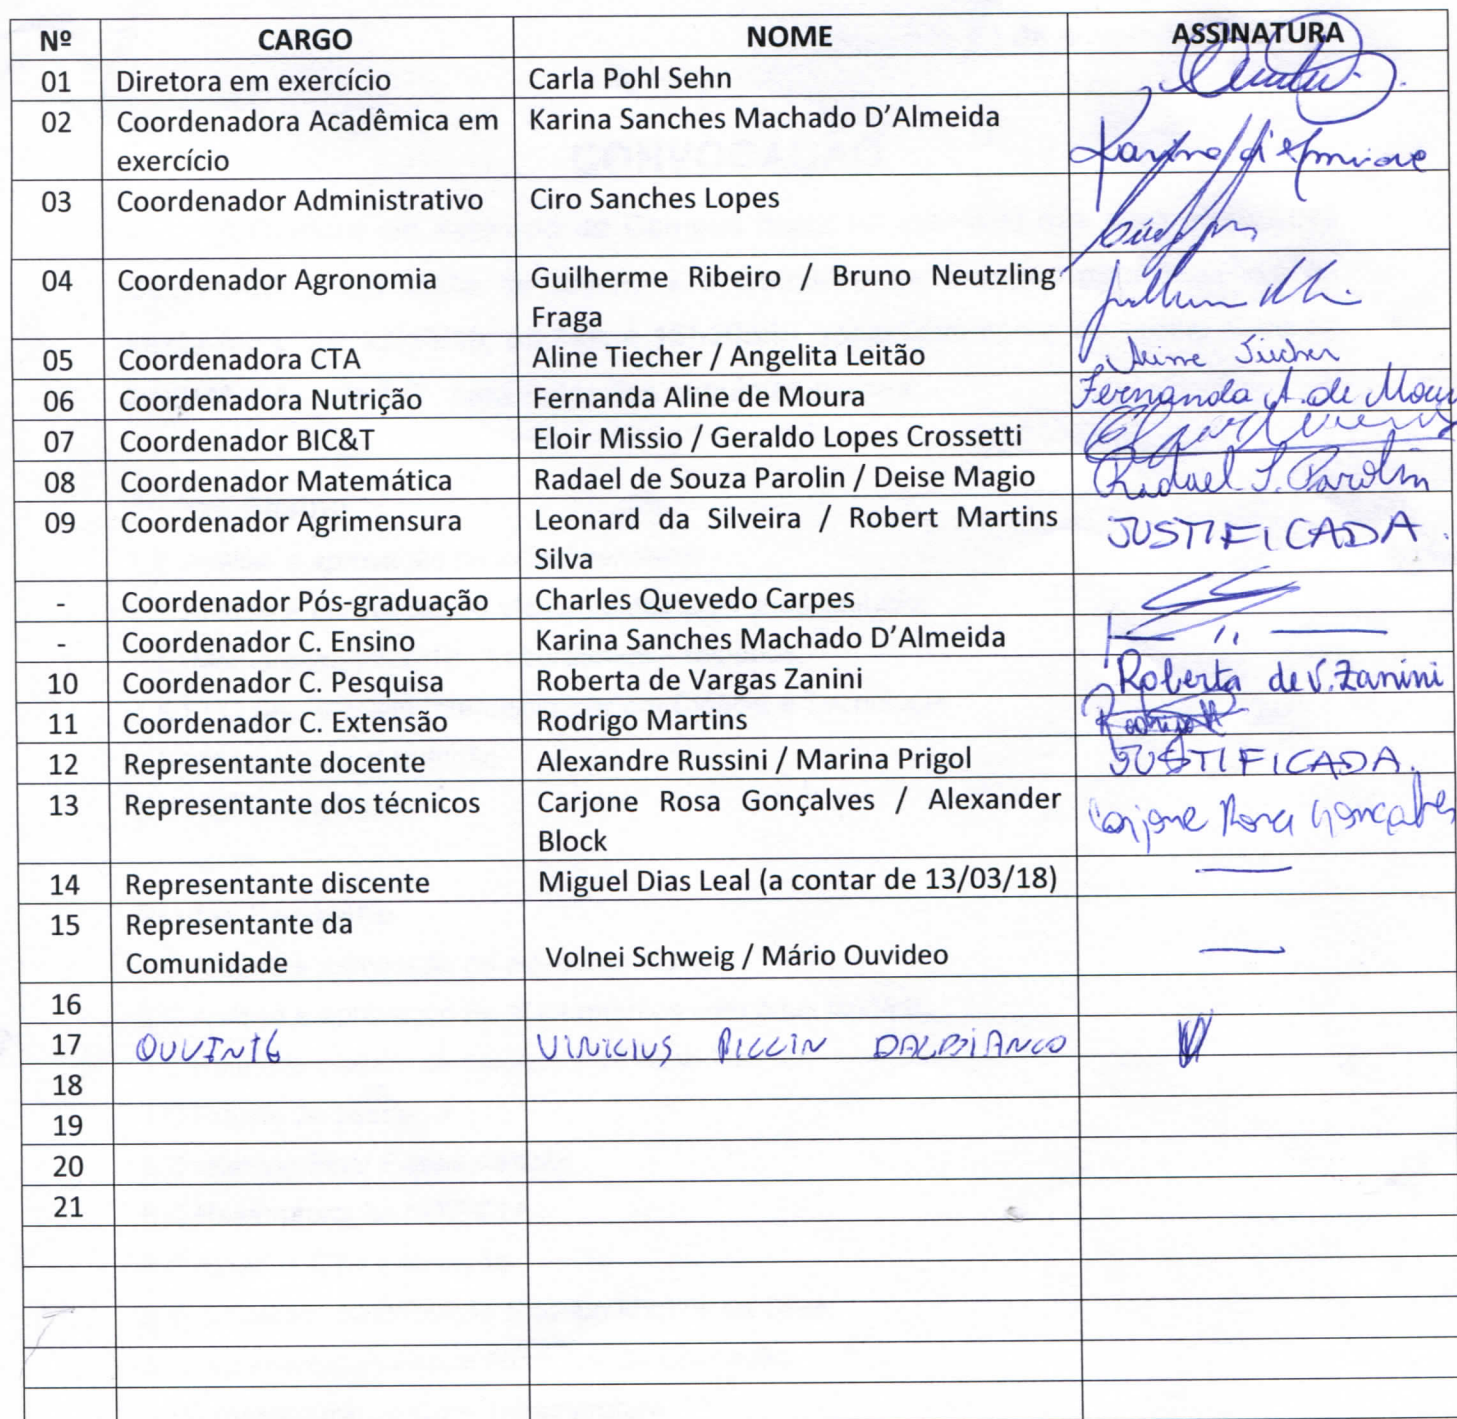 Nº CARGO NOME ASSINATURA
01 Diretora em exercício Carla Pohl Sehn
02 Coordenadora Acadêmica em Karina Sanches Machado D'Almeida
exercício
03 Coordenador Administrativo Ciro Sanches Lopes
04 Coordenador Agronomia Guilherme Ribeiro / Bruno Neutzling
Fraga
05 Coordenadora CTA Aline Tiecher / Angelita Leitão Tiecher
06 Coordenadora Nutrição Fernanda Aline de Moura Fernanda A. de Moura
07 Coordenador BIC&T Eloir Missio / Geraldo Lopes Crossetti
08 Coordenador Matemática Radael de Souza Parolin / Deise Magio Radael S. Parolin
09 Coordenador Agrimensura Leonard da Silveira / Robert Martins JUSTIFICADA.
Silva
- Coordenador Pós-graduação Charles Quevedo Carpes
- Coordenador C. Ensino Karina Sanches Machado D'Almeida — ,, —
10 Coordenador C. Pesquisa Roberta de Vargas Zanini Roberta de V. Zanini
11 Coordenador C. Extensão Rodrigo Martins Rodrigo M
12 Representante docente Alexandre Russini / Marina Prigol JUSTIFICADA.
13 Representante dos técnicos Carjone Rosa Gonçalves / Alexander Carjone Rosa Gonçalves
Block
14 Representante discente Miguel Dias Leal (a contar de 13/03/18) —
15 Representante da
Comunidade Volnei Schweig / Mário Ouvideo —
16
17 OUVINTE VINICIUS PICCIN DALBIANCO
18
19
20
21